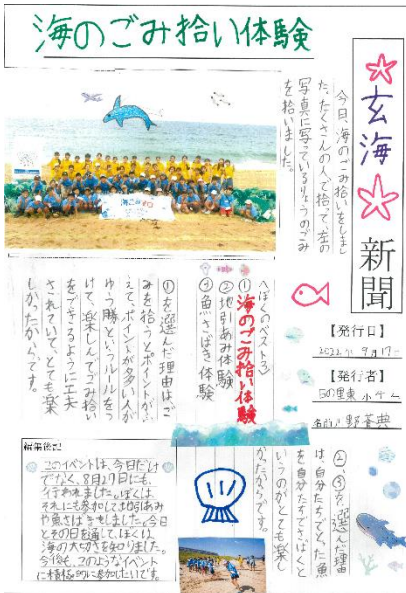 海のごみ拾い体験
玄海
新聞
今日、海のごみ拾いをしまし
た。たくさんの人で拾って、左の
写真に写っているりょうのごみ
を拾いました。
【発行日】
9月17
【発行者】
ぼくのベスト3
①海のごみ拾い体験
②地引あみ体験
③魚さばき体験
①を選んだ理由は、ご
みを拾うとポイントが
えて、ポイントが多い人が
ゆう勝というルールをつ
けて、楽しんでごみ拾い
をできるように工夫
されていて、とても楽
しかったからです。
②、③を選んだ理由
は、自分たちでとった魚
を自分たちでさばくと
いうのがとても楽し
かったからです。
編集後記
このイベントは、今日だけ
でなく、8月27日にも、
行われました。ぼくは、
それにも参加して地引あみ
や魚さばきをしました。今日
とその日を通して、ぼくは、
海の大切さを知りました。
今後も、このようなイベント
に積極的に参加したいです。